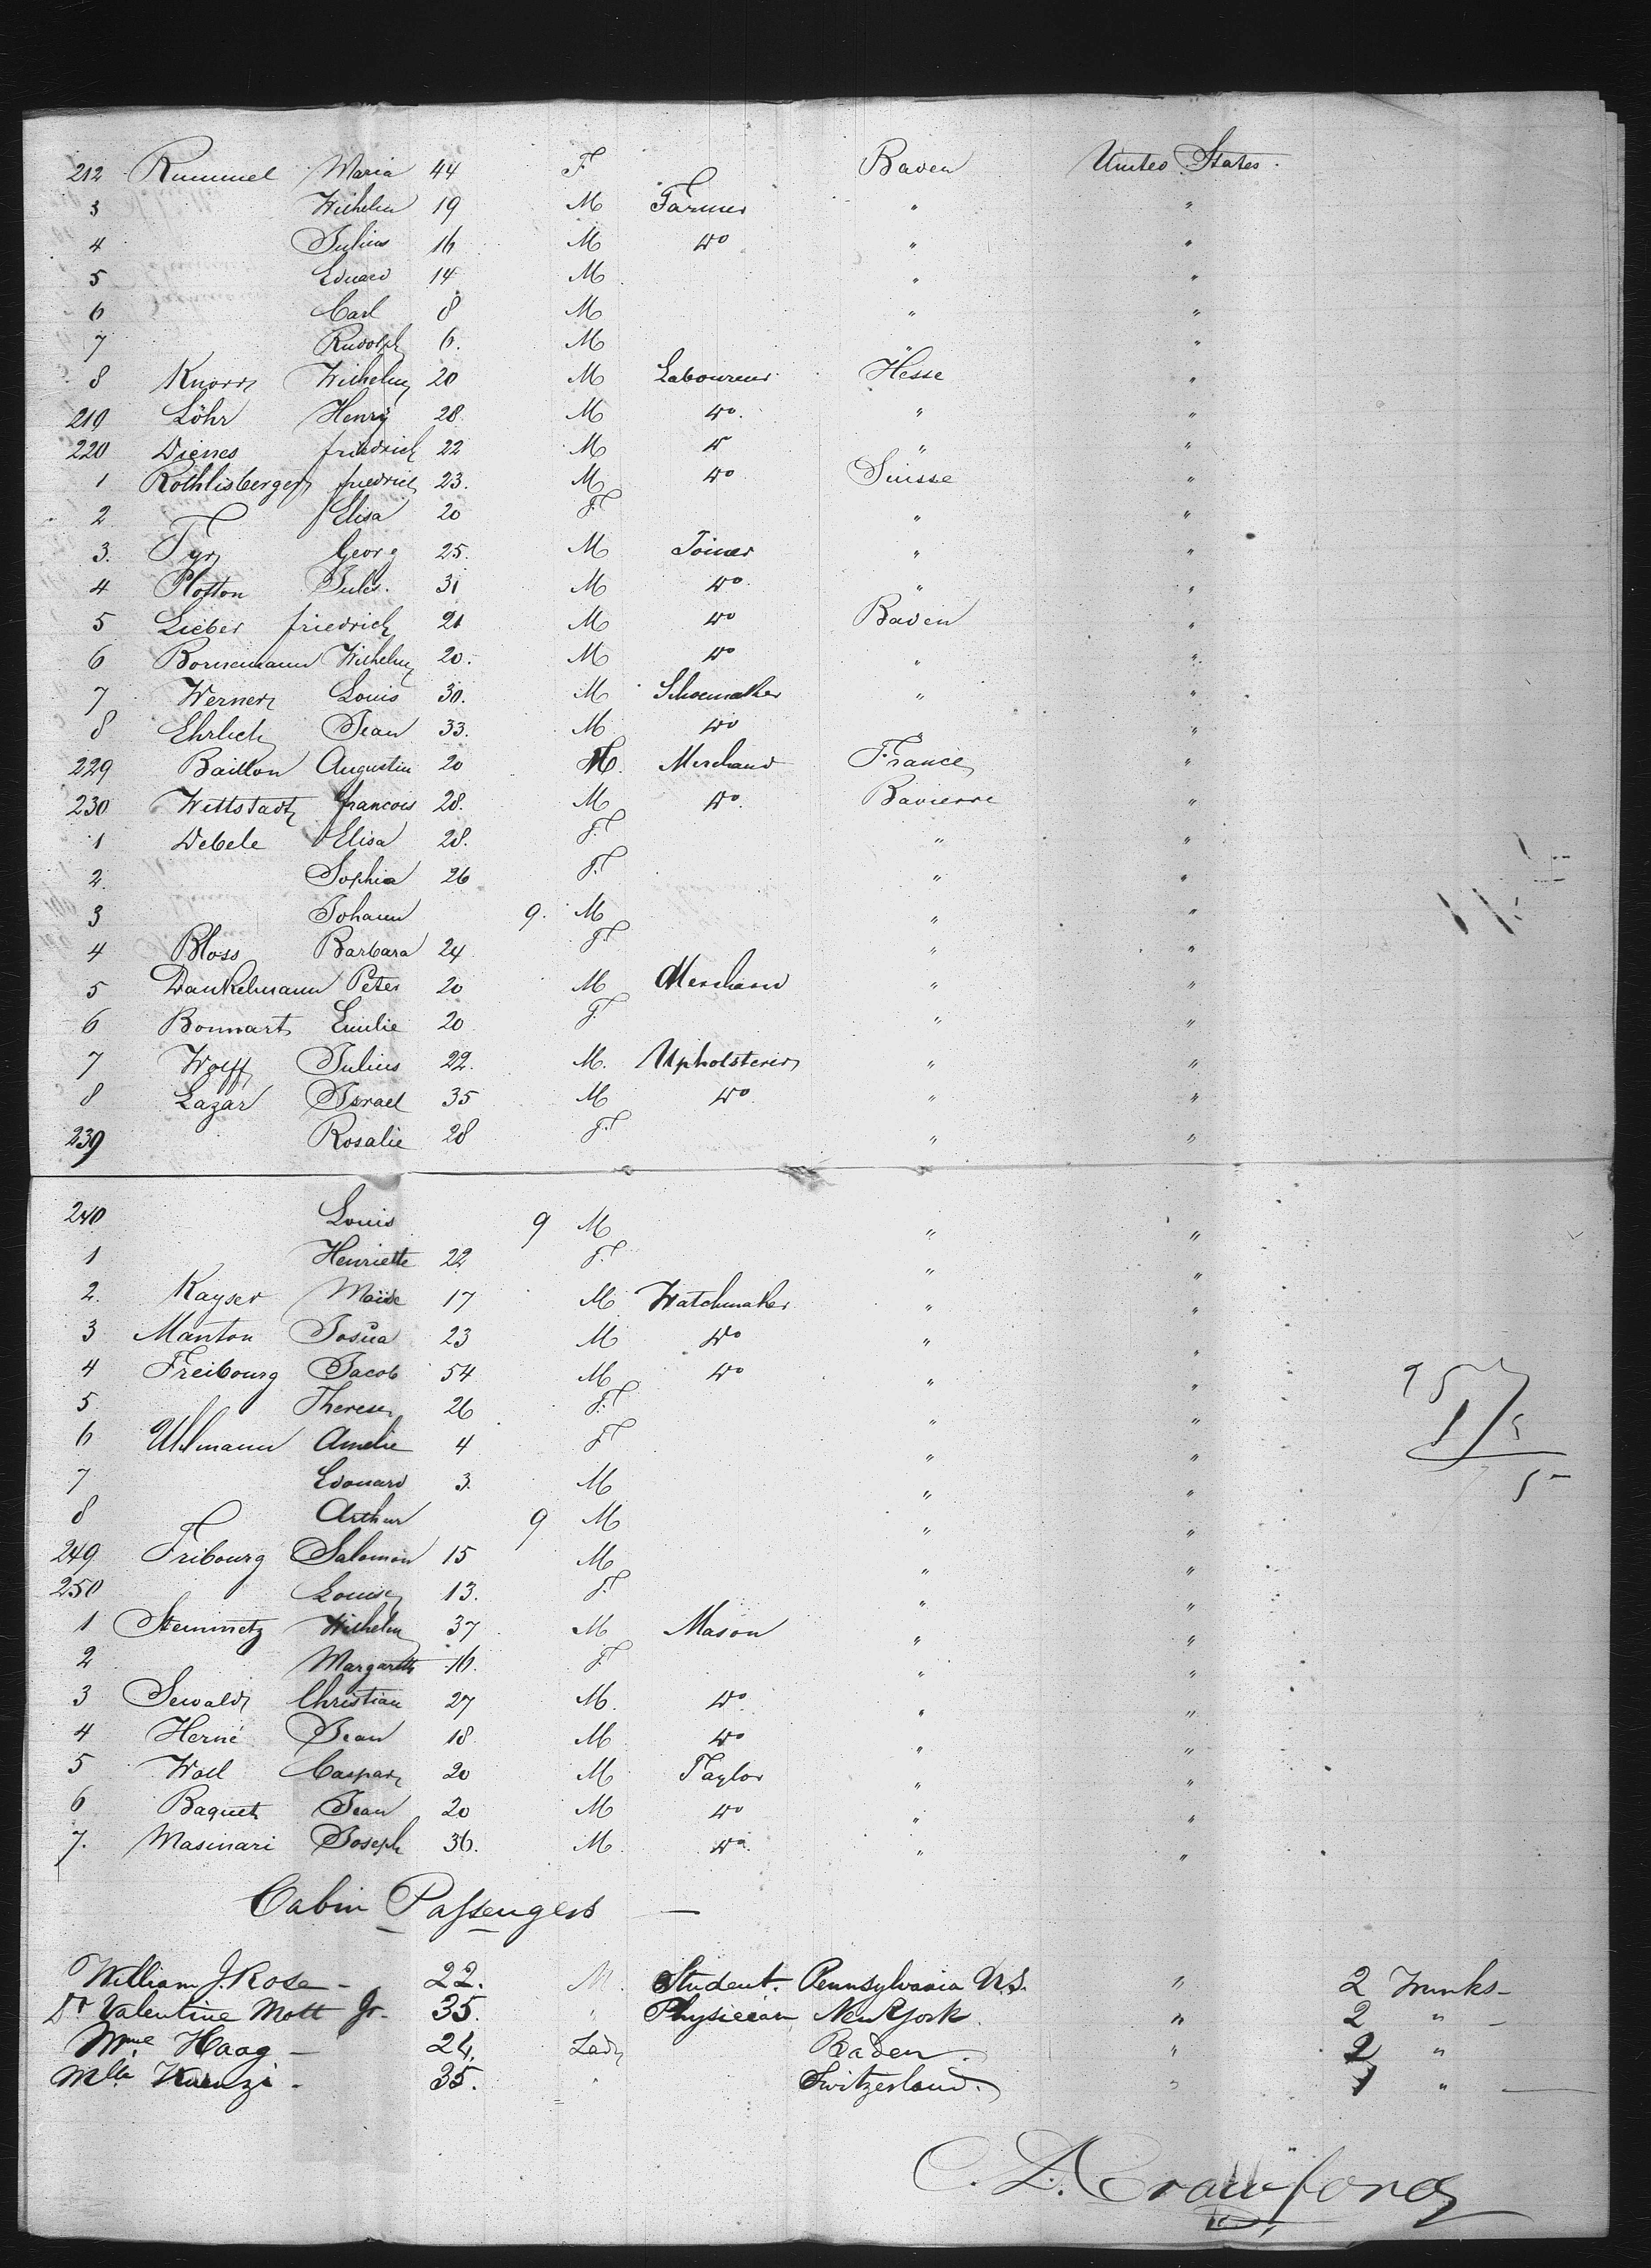 212 Rummel Maria 44 F Baden United States.
3 Wilhelm 19 M Farmer " "
4 Julius 16 M do " "
5 Eduard 14 M " "
6 Carl 8 M " "
7 Rudolph 6. M " "
8 Knorr Wilhelm 20 M Laboureur Hesse "
219 Löhr Henry 28. M do. " "
220 Dienes friedrich 22 M d " "
1 Röthlisberger friedrich 23. M do Suisse "
2 Elisa 20 F. " "
3. Tyr Georg 25. M Joiner " "
4 Plotton Jules. 31 M do. " "
5 Lieber friedrich 21 M do Baden "
6 Bornemann Wilhelm 20. M do " "
7 Werner Louis 30. M Schoemaker " "
8 Ehrlich Jean 33. M do " "
229 Baillon Augustin 20 M. Merchand France "
230 Wittstadt francois 28. M do. Bavierre "
1 Debele Elisa 28. F. " "
2. Sophia 26 F. " "
3 Johann 9. M " "
4 Bloss Barbara 24 F. " "
5 Dankelmann Peter 20 M Merchand " "
6 Bonnart Emilie 20 F. " "
7 Wolff Julius 22. M. Upholsterer " "
8 Lazar Israel 35 M do " "
239 Rosalie 28 F. " "
240 Louis 9 M " "
1 Henriette 22 F. " "
2. Kayser Moïse 17 M Watchmaker " "
3 Manton Josua 23 M do " "
4 Freibourg Jacob 54 M do " "
5 Therese 26 F. " "
6 Uhlmann Amelie 4 F " "
7 Edouard 3. M " "
8 Arthur 9 M " "
249 Fribourg Salomon 15 M " "
250 Louise 13. F. " "
1 Steinmetz Wilhelm 37 M Mason " "
2 Margareth 16. F " "
3 Sewald Christian 27 M. do " "
4 Herné Jean 18 M do " "
5 Woll Caspar 20 M Taylor " "
6 Baquet Jean 20 M do " "
7. Masinari Joseph 36. M. do " "
Cabin Passengers —
William J. Rose - 22. M. Student. Pennsylvania U.S. " 2 Trunks -
Dr Valentine Mott Jr. 35. " Physician New York " 2 " -
Mme Haag - 24. Lady Baden. " 2 "
Mlle Kuenzi - 35. " Switzerland. " 1 " —
C. D. Crawford